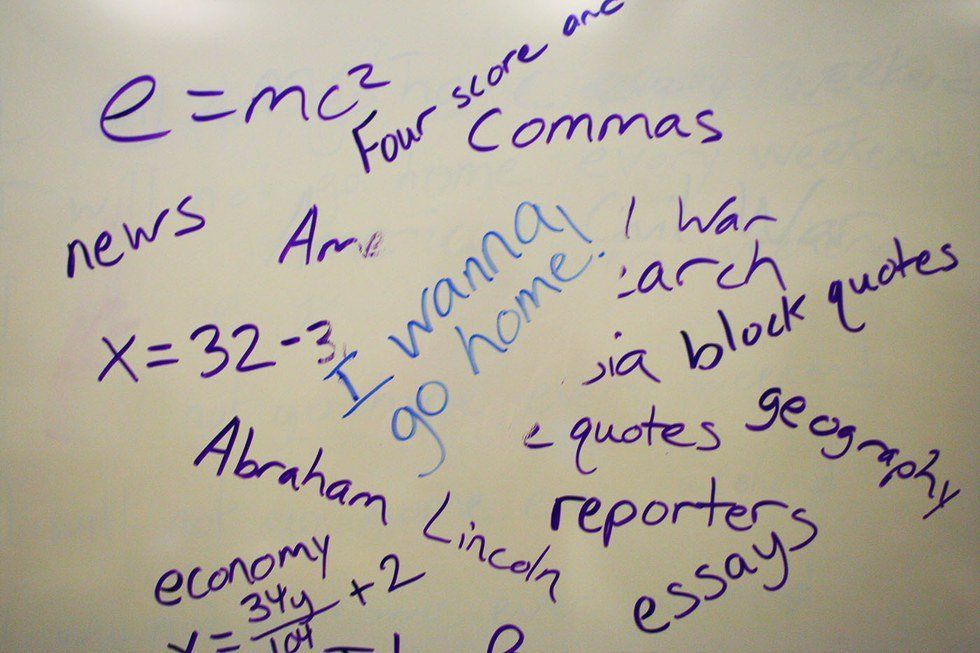 e = mc²
Four score and
Commas
news
Am
I wanna
go home.
War
arch
x = 32 - 3
ia block quotes
quotes
geography
Abraham Lincoln
reporters
economy
essays
34y/104 + 2